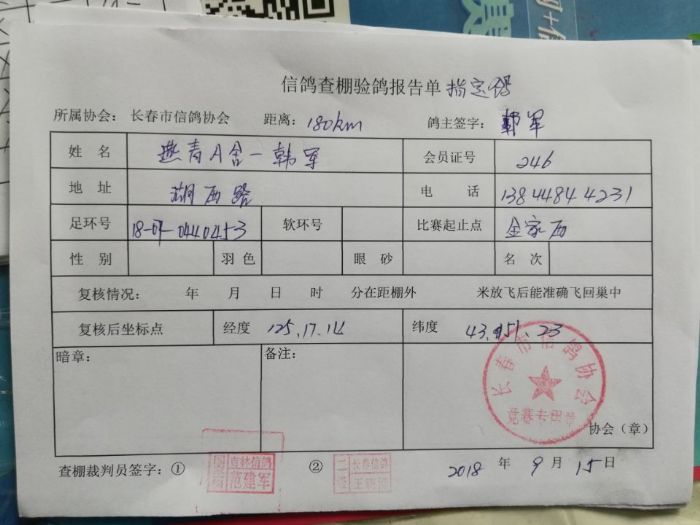 信鸽查棚验鸽报告单 指定鸽
所属协会： 长春市信鸽协会 距离： 180km 鸽主签字： 韩军
姓 名 燕青A舍—韩军 会员证号 246
地 址 湖西路 电 话 13844844231
足环号 18-07-0440453 软环号 比赛起止点 金家西
性 别 羽 色 眼 砂 名 次
复核情况： 年 月 日 时 分在距棚外 米放飞后能准确飞回巢中
复核后坐标点 经度 125.17.14 纬度 43.51.23
暗章： 备注： 长春市信鸽协会
竞赛专用章
协会（章）
查棚裁判员签字：① 吉林信鸽 范建军 ② 长春信鸽 2018 年 9 月 15 日